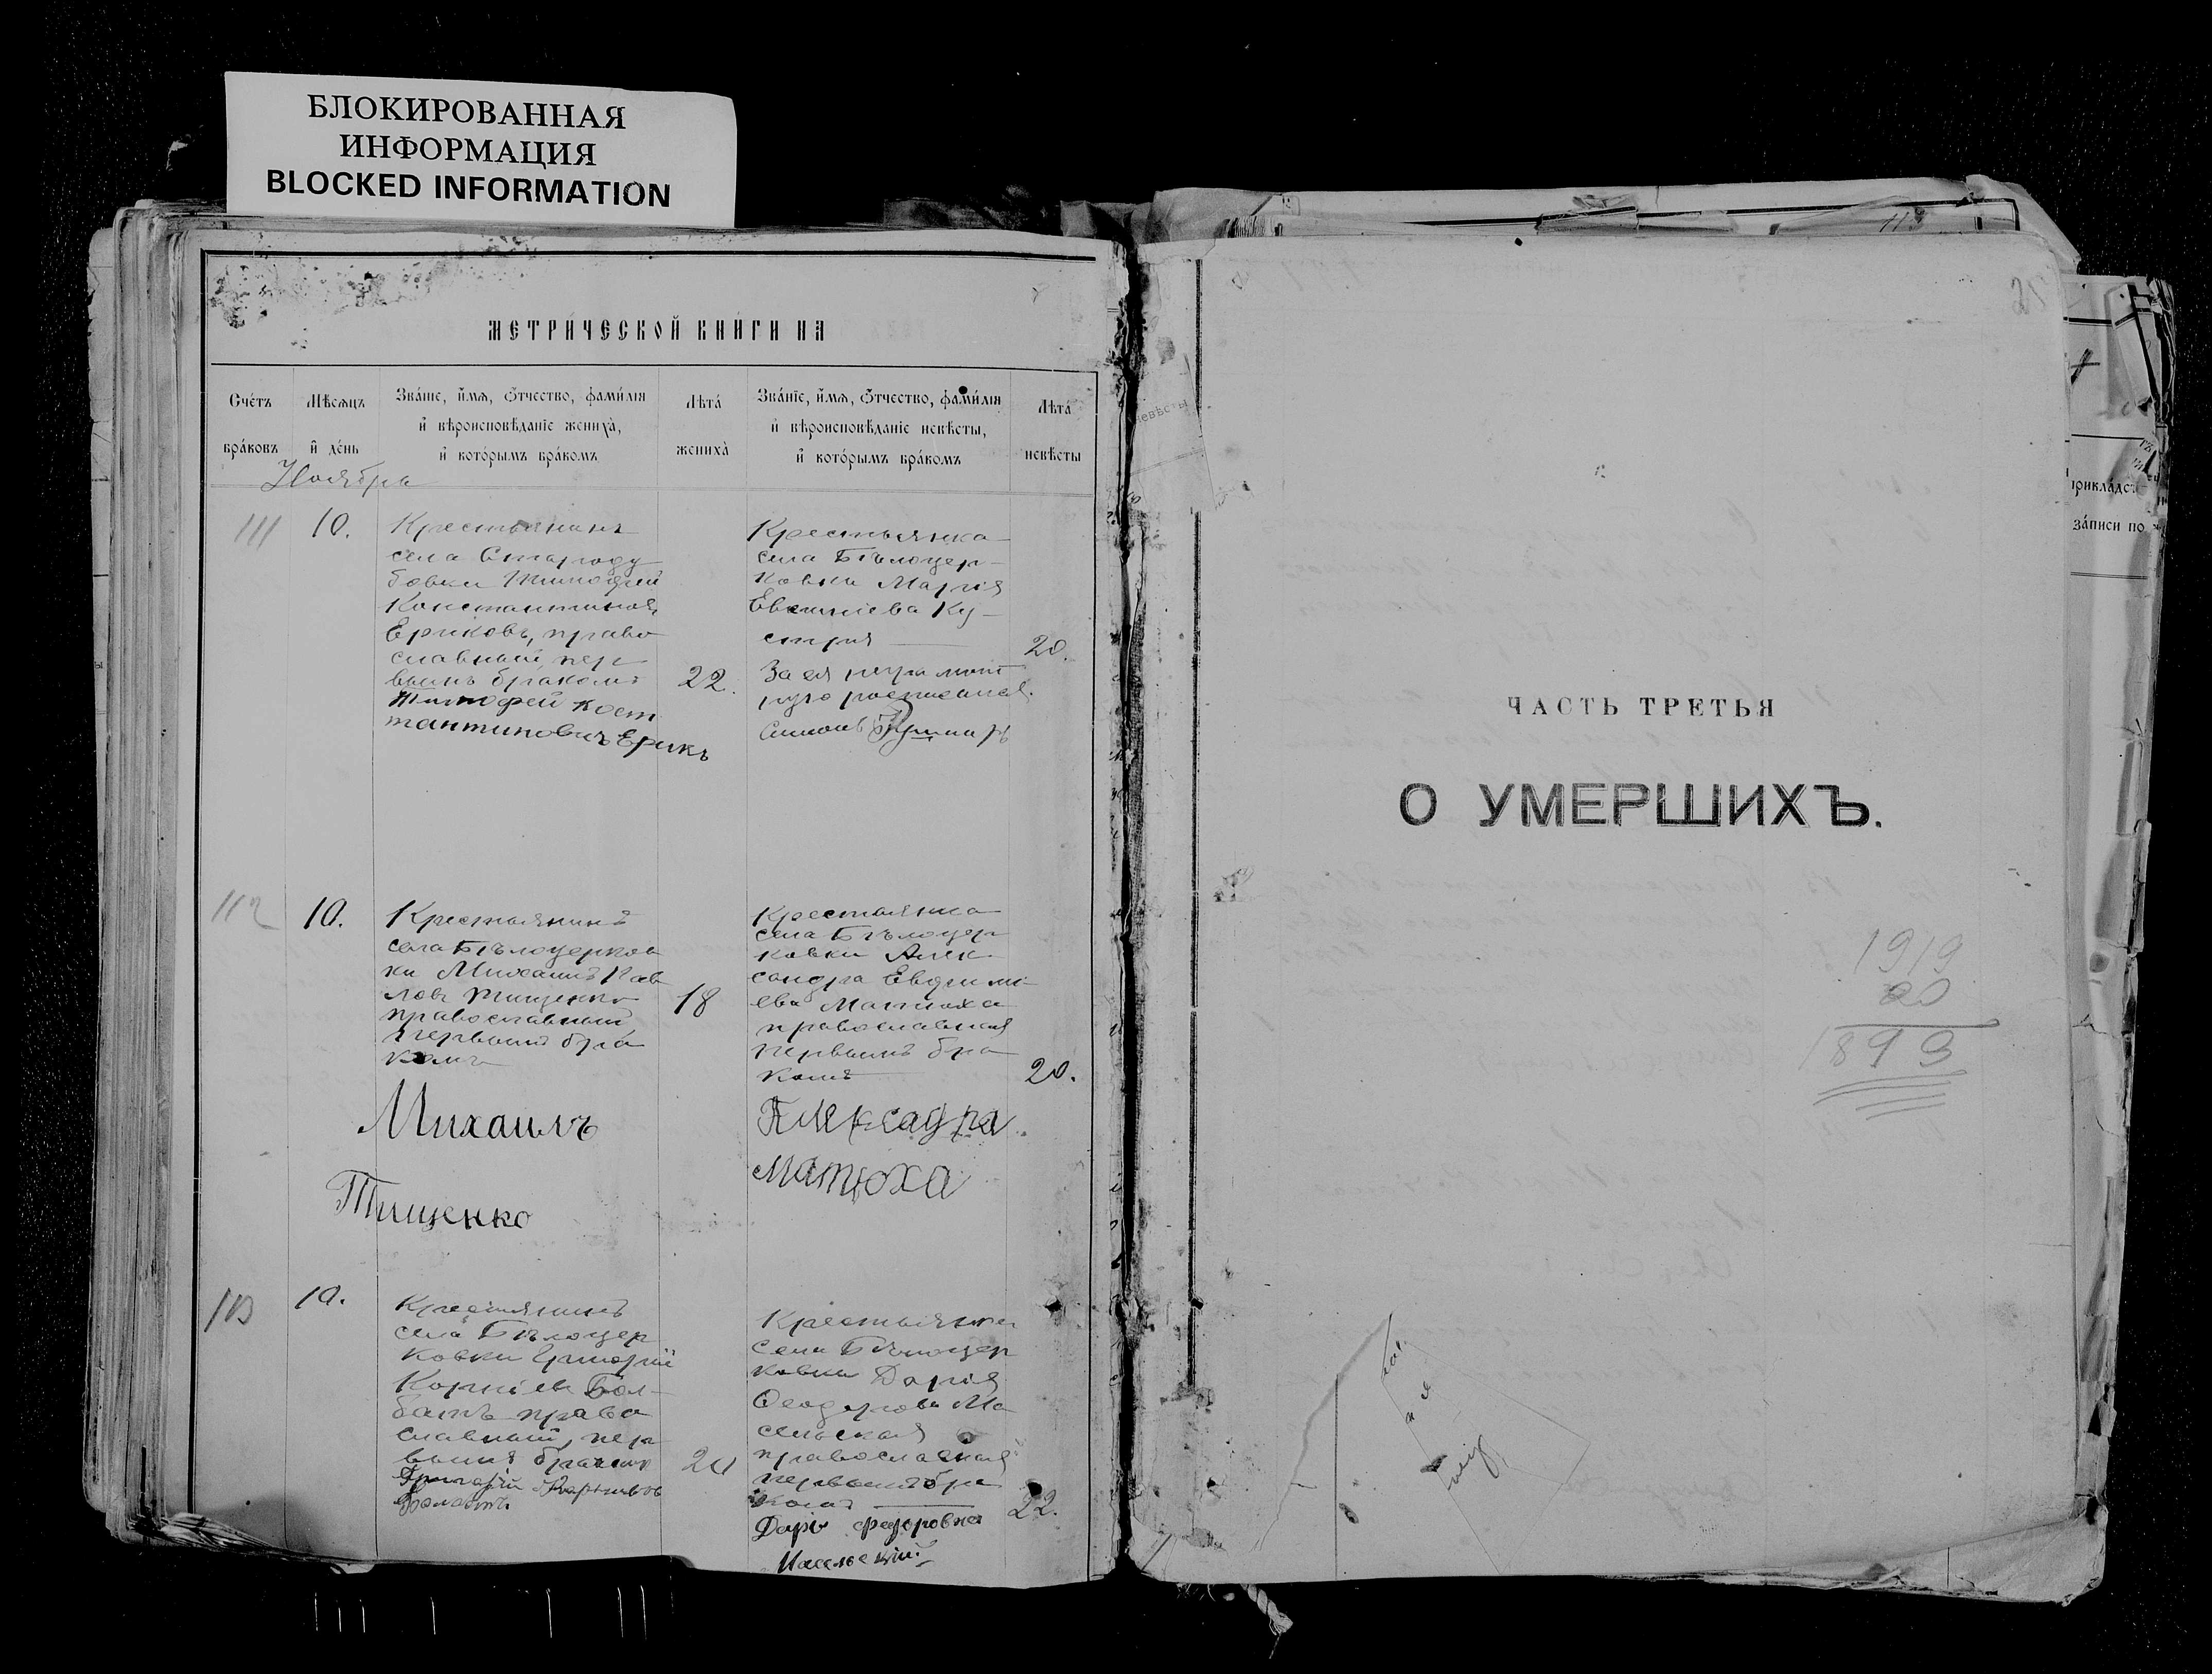 БЛОКИРОВАННАЯ
ИНФОРМАЦИЯ
BLOCKED INFORMATION
МЕТРИ́ЧЕСКОЙ КНИ́ГИ НА
Сче́тъ
бра́ковъ
Мѣ́сѧцъ
и҆ де́нь
Зва́нїе, и҆́мѧ, ѻ҆́тчество, фами́лїѧ
и҆ вѣроисповѣ́данїе жениха̀,
и҆ кото́рымъ бра́комъ
Лѣта̀
жениха̀
Зва́нїе, и҆́мѧ, ѻ҆́тчество, фами́лїѧ
и҆ вѣроисповѣ́данїе невѣ́сты,
и҆ кото́рымъ бра́комъ
Лѣта̀
невѣ́сты
Ноября
111
10.
Крестьянинъ
села Староду
бовки Тимофей
Константиновъ
Ериковъ, право
славный, пер
вымъ бракомъ
22.
Тимофей Конс
тантиновичъ Ерикъ
Крестьянка
села Бѣлоцер-
ковки Марія
Евгеніева Ку-
стря
20.
За ея неграмот
ную росписался
Симонъ
112
10.
Крестьянинъ
села Бѣлоцерков
ки Михаилъ Пав
ловъ Тищенко
православный
первымъ бра
комъ
18
Михаилъ
Тищенко
Крестьянка
села Бѣлоцер
ковки Алек-
сандра Евфими-
ева Матюха
православная
первымъ бра
комъ
20.
Алексадра
Матюха
113
10.
Крестьянинъ
села Бѣлоцер
ковки Григорій
Корніевъ Бол-
батъ право
славный, пер
вымъ бракомъ
20
Григорій
Крестьянка
села Бѣлоцер
ковки Дарія
Ѳеодорова Ма
сельская
православная
первымъ бра
комъ
22.
Дарія Федоровна
ЧАСТЬ ТРЕТЬЯ
О УМЕРШИХЪ.
1919
20
1899
113
прикла́дст
за́писи по